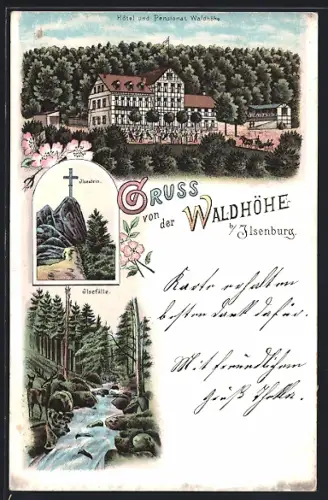 Hôtel und Pensionat Waldhöhe
Ilsestein.
GRUSS
von der WALDHÖHE
b/ Ilsenburg.
Ilsefälle.
Karte erhalten
besten Dank dafür.
Mit freundlichem
Gruß Thekla.